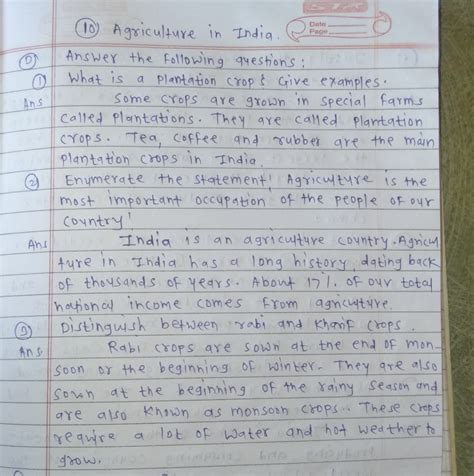 10 Agriculture in India.
Date
Page
5 Answer the following questions :
1 What is a plantation crop? Give examples.
Ans Some crops are grown in special farms
called plantations. They are called plantation
crops. Tea, coffee and rubber are the main
plantation crops in India.
2 Enumerate the statement! Agriculture is the
most important occupation of the people of our
country!
Ans India is an agriculture country. Agricul
ture in India has a long history dating back
of thousands of years. About 17%. of our total
national income comes from agriculture.
3 Distinguish between rabi and kharif crops.
Ans Rabi crops are sown at the end of mon-
soon or the beginning of winter. They are also
sown at the beginning of the rainy season and
are also known as monsoon crops. These crops
require a lot of water and hot weather to
grow.